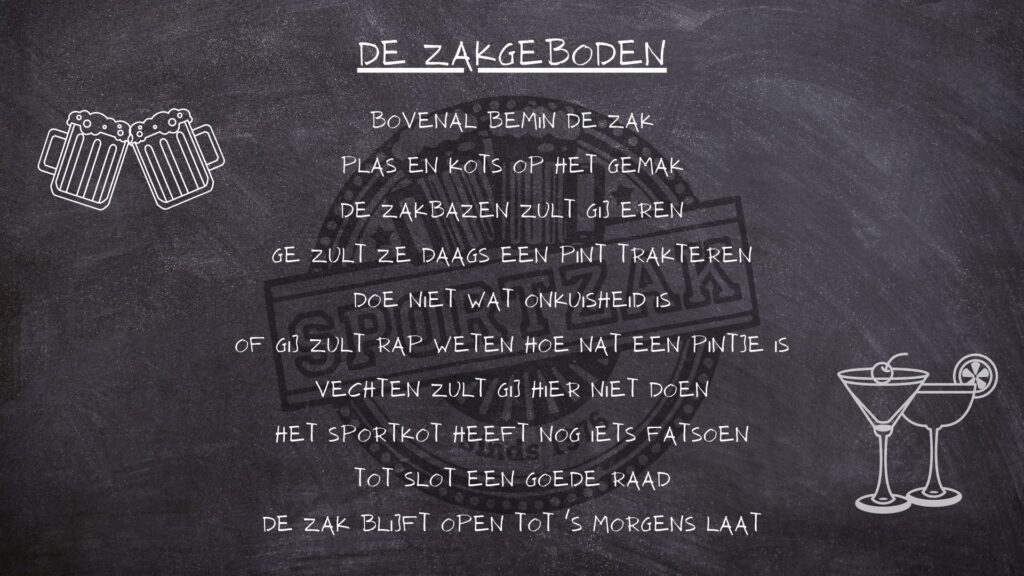 DE ZAKGEBODEN
BOVENAL BEMIN DE ZAK
PLAS EN KOTS OP HET GEMAK
DE ZAKBAZEN ZULT GIJ EREN
GE ZULT ZE DAAGS EEN PINT TRAKTEREN
DOE NIET WAT ONKUISHEID IS
OF GIJ ZULT RAP WETEN HOE NAT EEN PINTJE IS
VECHTEN ZULT GIJ HIER NIET DOEN
HET SPORTKOT HEEFT NOG IETS FATSOEN
TOT SLOT EEN GOEDE RAAD
DE ZAK BLIJFT OPEN TOT 'S MORGENS LAAT
SPORTZAK